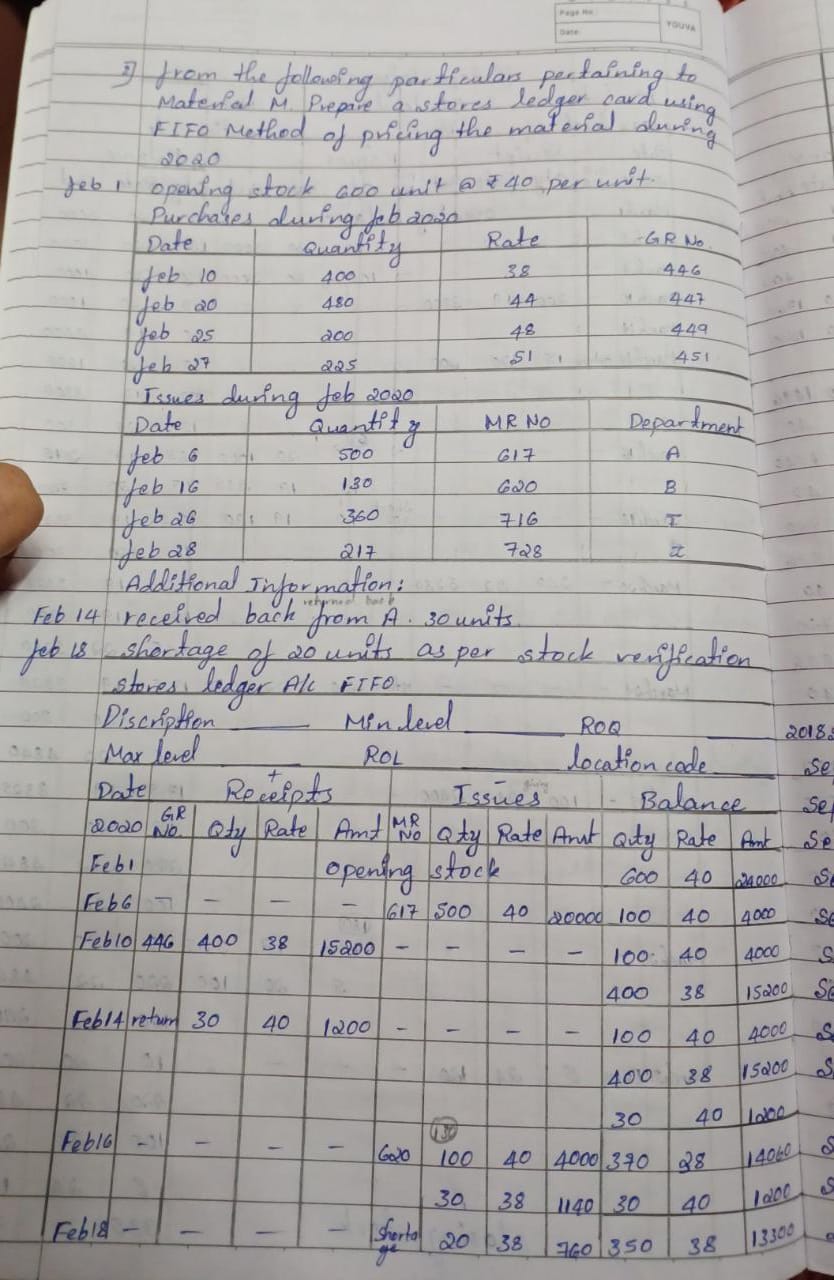 Page No:
Date:
YOUVA
from the following particulars pertaining to
Material M. Prepare a stores ledger card using
FIFO Method of pricing the material during
2020
feb 1 opening stock 600 unit @ ₹40 per unit.
Purchases during feb 2020
Date Quantity Rate GR No.
feb 10 400 38 446
feb 20 480 44 447
feb 25 200 48 449
feb 27 225 51 451
Issues during feb 2020
Date Quantity MR NO Department
feb 6 500 617 A
feb 16 130 620 B
feb 26 360 716
feb 28 217 728
Additional Information:
Feb 14 received back from A. 30 units.
feb 18 shortage of 20 units as per stock verification
stores ledger A/c FIFO.
Discription Min level ROQ
Max level ROL location code
Date Receipts + Issues - Balance
2020 GR NO. Qty Rate Amt MR NO Qty Rate Amt Qty Rate Amt
Feb 1 opening stock 600 40 24000
Feb 6 - - - - 617 500 40 20000 100 40 4000
Feb 10 446 400 38 15200 - - - - 100 40 4000
400 38 15200
Feb 14 return 30 40 1200 - - - - 100 40 4000
400 38 15200
30 40 1200
Feb 16 - - - - 620 100 40 4000 370 28 14060
30 38 1140 30 40 1200
Feb 18 - - - - Shortage 20 38 760 350 38 13300
2018